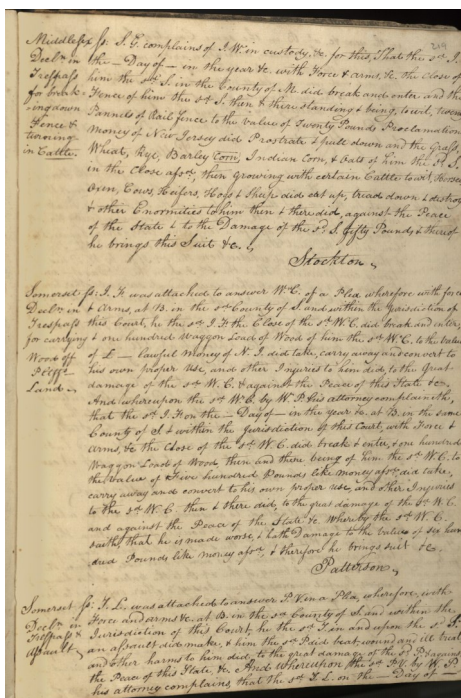 214
Middlesex ss: S. G. complains of J. W. in custody, &c. for this, That the sd J.
Decln in the — Day of — in the year &c. with Force & arms, &c. the close of
Trespass him the sd S. in the County of M. did break and enter and the
for break- Fence of him the sd S. then & there standing & being, to wit, twenty
ing down Pannels of Rail fence to the value of Twenty Pounds Proclamation
Fence & money of New Jersey did Prostrate & pull down and the Grass,
turning Wheat, Rye, Barley Corn, Indian Corn, & Oats of him the sd S.
in Cattle. in the Close afsd, then growing with certain Cattle to wit, Horses
Oxen, Cows, Heifers, Hogs & Sheep did eat up, tread down & destroy
& other Enormities to him then & there did, against the Peace
of the State & to the Damage of the sd S. fifty Pounds & thereof
he brings this Suit &c.
Stockton
Somerset ss: I. F. was attached to answer W. C. of a Plea wherefore with force
Decln in & Arms, at B. in the sd County of S. and within the Jurisdiction of
Trespass this Court, he the sd I. F. the Close of the sd W. C. did break and enter,
for carrying & one hundred Waggon Load of Wood of him the sd W. C. to the value
Wood off of £ — lawful Money of N. J. did take, carry away and convert to
Pltffs his own proper use, and other Injuries to him did, to the Great
Land. damage of the sd W. C. & against the Peace of this State &c.
And whereupon the sd W. C. by W. P. his attorney complaineth,
that the sd I. F. on the — Day of — in the year &c. at B. in the same
County of S. & within the Jurisdiction of this Court, with Force &
Arms, &c. the Close of the sd W. C. did break & enter, & one hundred
Waggon Loads of Wood, then and there being of him the sd W. C. to
the value of Five hundred Pounds like money afsd did take,
carry away and convert to his own proper use, and other Injuries
to the sd W. C. then & there did, to the great damage of the sd W. C.
and against the Peace of the State &c. Whereby the sd W. C.
saith, that he is made worse, & hath Damage to the value of six hun
dred Pounds like money afsd, & therefore he brings suit &c.
Patterson
Somerset ss: T. L. was attached to answer P. V. in a Plea, wherefore, with
Decln in Force and arms &c. at B. in the sd County of S. and within the
Trespass & Jurisdiction of this Court, he the sd T. in and upon the sd P.
assault an assault did make, & him the sd P. did beat, wound and ill treat
and other harms to him did, to the great damage of the sd P. & against
the Peace of this State &c. And whereupon the sd P. V. by W. P.
his attorney complains, that the sd T. L. on the — Day of —